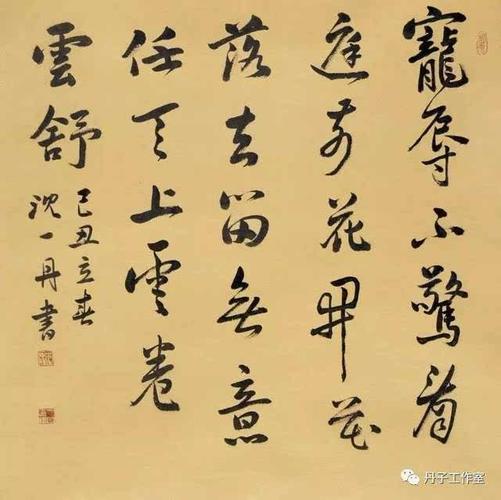 寵辱不驚看
庭前花開花
落去留無意
任天上雲卷
雲舒
己丑立春
沈一丹書
丹子工作室